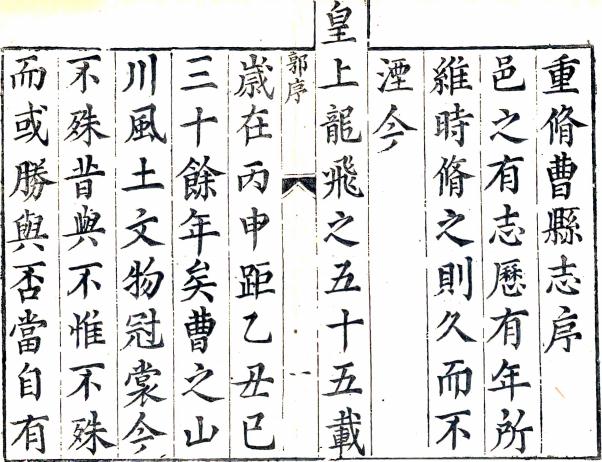 重脩曹縣志序
邑之有志歷有年所
維時脩之則久而不
湮今
皇上龍飛之五十五載
郭序
一
歲在丙申距乙丑已
三十餘年矣曹之山
川風土文物冠裳今
不殊昔與不惟不殊
而或勝與否當自有